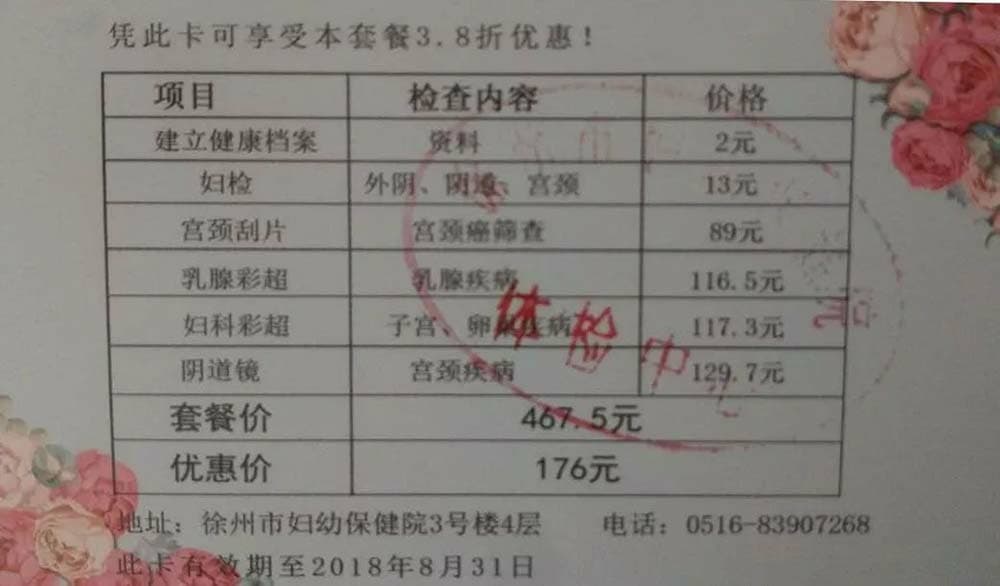 凭此卡可享受本套餐3.8折优惠！
项目 检查内容 价格
建立健康档案 资料 2元
妇检 外阴、阴道、宫颈 13元
宫颈刮片 宫颈癌筛查 89元
乳腺彩超 乳腺疾病 116.5元
妇科彩超 子宫、卵巢疾病 117.3元
阴道镜 宫颈疾病 129.7元
套餐价 467.5元
优惠价 176元
地址：徐州市妇幼保健院3号楼4层 电话：0516-83907268
此卡有效期至2018年8月31日
体检中心
院